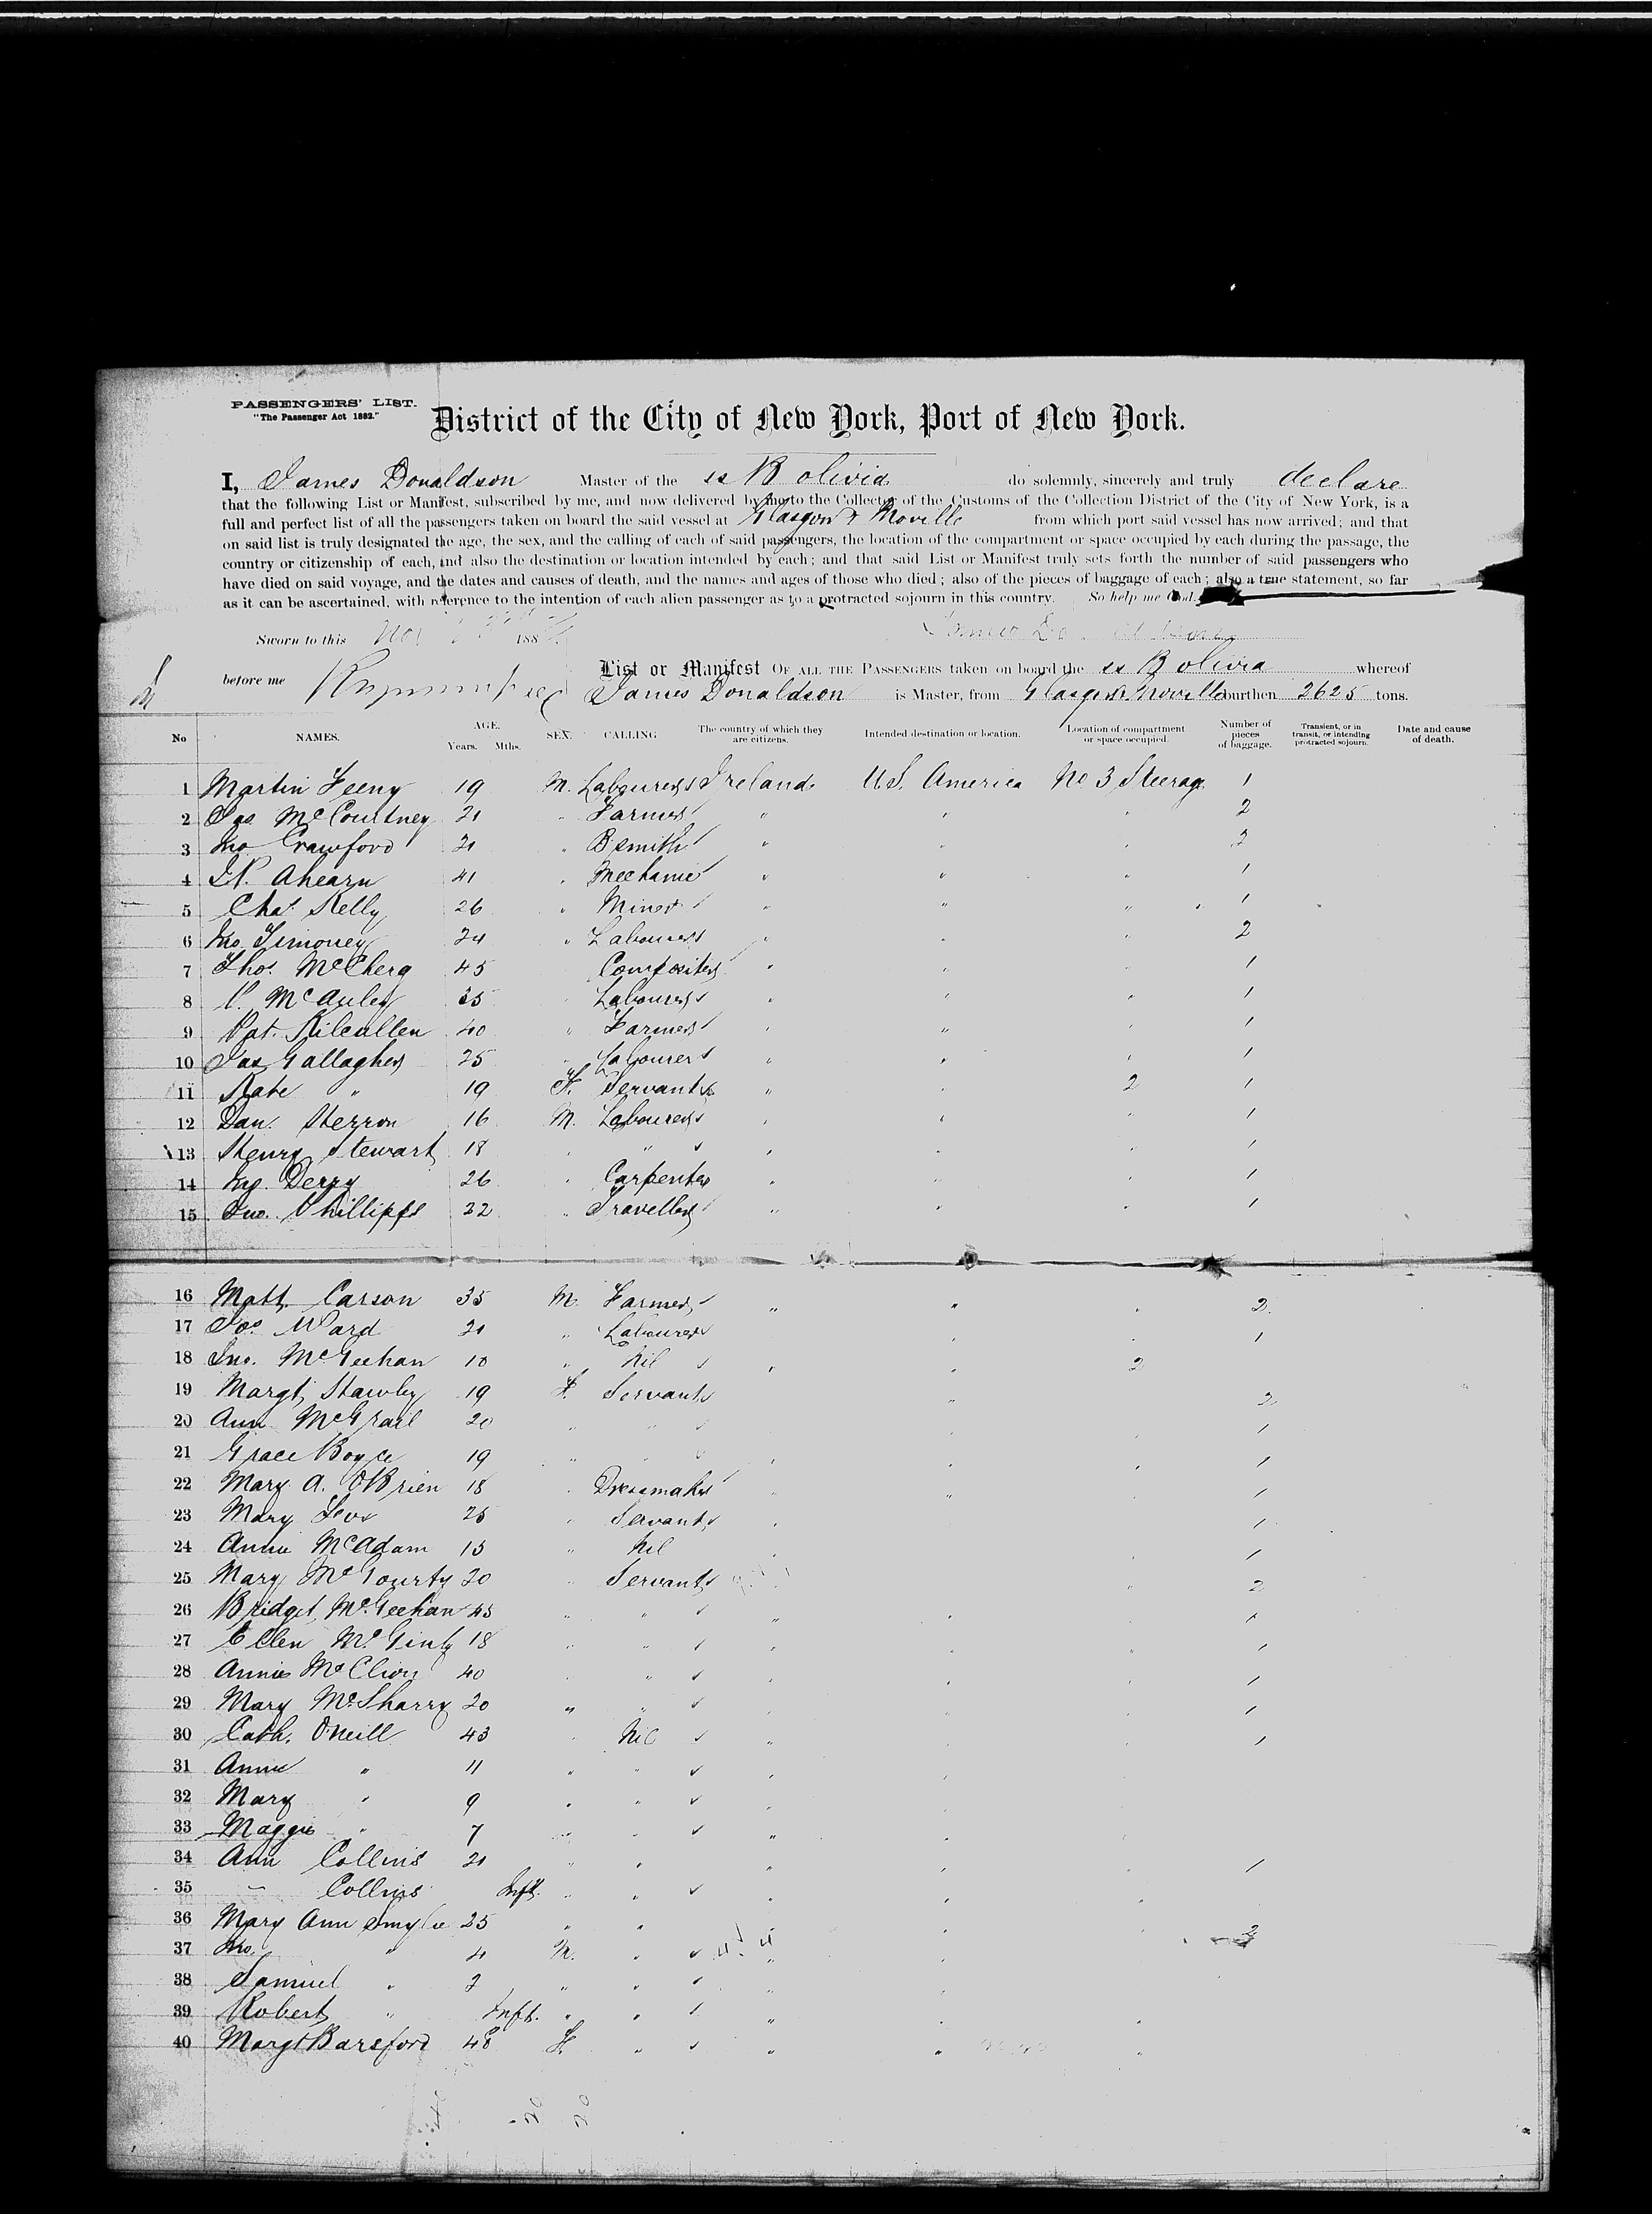 PASSENGERS' LIST.
"The Passenger Act 1882."
District of the City of New York, Port of New York.
I, James Donaldson Master of the ss Bolivia do solemnly, sincerely and truly declare
that the following List or Manifest, subscribed by me, and now delivered by me to the Collector of the Customs of the Collection District of the City of New York, is a
full and perfect list of all the passengers taken on board the said vessel at Glasgow & Moville from which port said vessel has now arrived; and that
on said list is truly designated the age, the sex, and the calling of each of said passengers, the location of the compartment or space occupied by each during the passage, the
country or citizenship of each, and also the destination or location intended by each; and that said List or Manifest truly sets forth the number of said passengers who
have died on said voyage, and the dates and causes of death, and the names and ages of those who died; also of the pieces of baggage of each; also a true statement, so far
as it can be ascertained, with reference to the intention of each alien passenger as to a protracted sojourn in this country. So help me God.
Sworn to this Nov 188
before me
List or Manifest OF ALL THE PASSENGERS taken on board the ss Bolivia whereof
James Donaldson is Master, from Glasgow & Moville burthen 2625 tons.
No NAMES. AGE. Years. Mths. SEX. CALLING The country of which they are citizens. Intended destination or location. Location of compartment or space occupied. Number of pieces of baggage. Transient, or in transit, or intending protracted sojourn. Date and cause of death.
1 Martin Feeny 19 M. Labourer Ireland U.S. America No 3 Steerage 1
2 Jas McCourtney 21 " Farmer " " " 2
3 Jno Crawford 21 " B smith " " " 2
4 Ahearn 41 " Mechanic " " " 1
5 Chas Kelly 26 " Miner " " " 1
6 Jno. Timoney 24 " Labourer " " " 2
7 Thos. McCherg 45 Compositor " " " 1
8 P. McAuley 35 " Labourer " " " 1
9 Pat. Kilcullen 40 " Farmer " " " 1
10 Jas Gallagher 25 " Labourer " " " 1
11 Kate " 19 F. Servant " " 2 1
12 Dan. Herron 16 M. Labourer " " " 1
13 Henry Stewart 18 " " " " " 1
14 Derry 26 " Carpenter " " " 1
15 Jno. Phillipps 22 " Traveller " " " 1
16 Matt. Carson 35 M. Farmer " " " 2
17 Jos. Ward 21 " Labourer " " 1
18 Jno. McGeehan 10 " Nil " " 2
19 Margt. Hawley 19 F. Servant " 2
20 Ann McGrail 20 " " " " 1
21 Grace Boyce 19 " " " " " 1
22 Mary A. O'Brien 18 " Dressmaker " " 1
23 Mary 25 " Servant " 1
24 Annie McAdam 15 " Nil " " 1
25 Mary McGourty 20 " Servant " 2
26 Bridget McGeehan 45 " " " " 1
27 Ellen McGinty 18 " " " " " 1
28 Annie 40 " " " " " 1
29 Mary McSharry 20 " " " " " 1
30 Cath. O'Neill 43 " Nil " " " 1
31 Annie " 11 " " " "
32 Mary " 9 " " " "
33 Maggie " 7 " " " " "
34 Ann Collins 21 " " " " " 1
35 – Collins Inft. " " " " "
36 Mary Ann Smylie 25 " " " " " 3
37 Jno. " 4 M. " " "
38 Samuel " 2 " " " "
39 Robert " Inft. " " " " "
40 Margt Barsford 48 F. " " " "